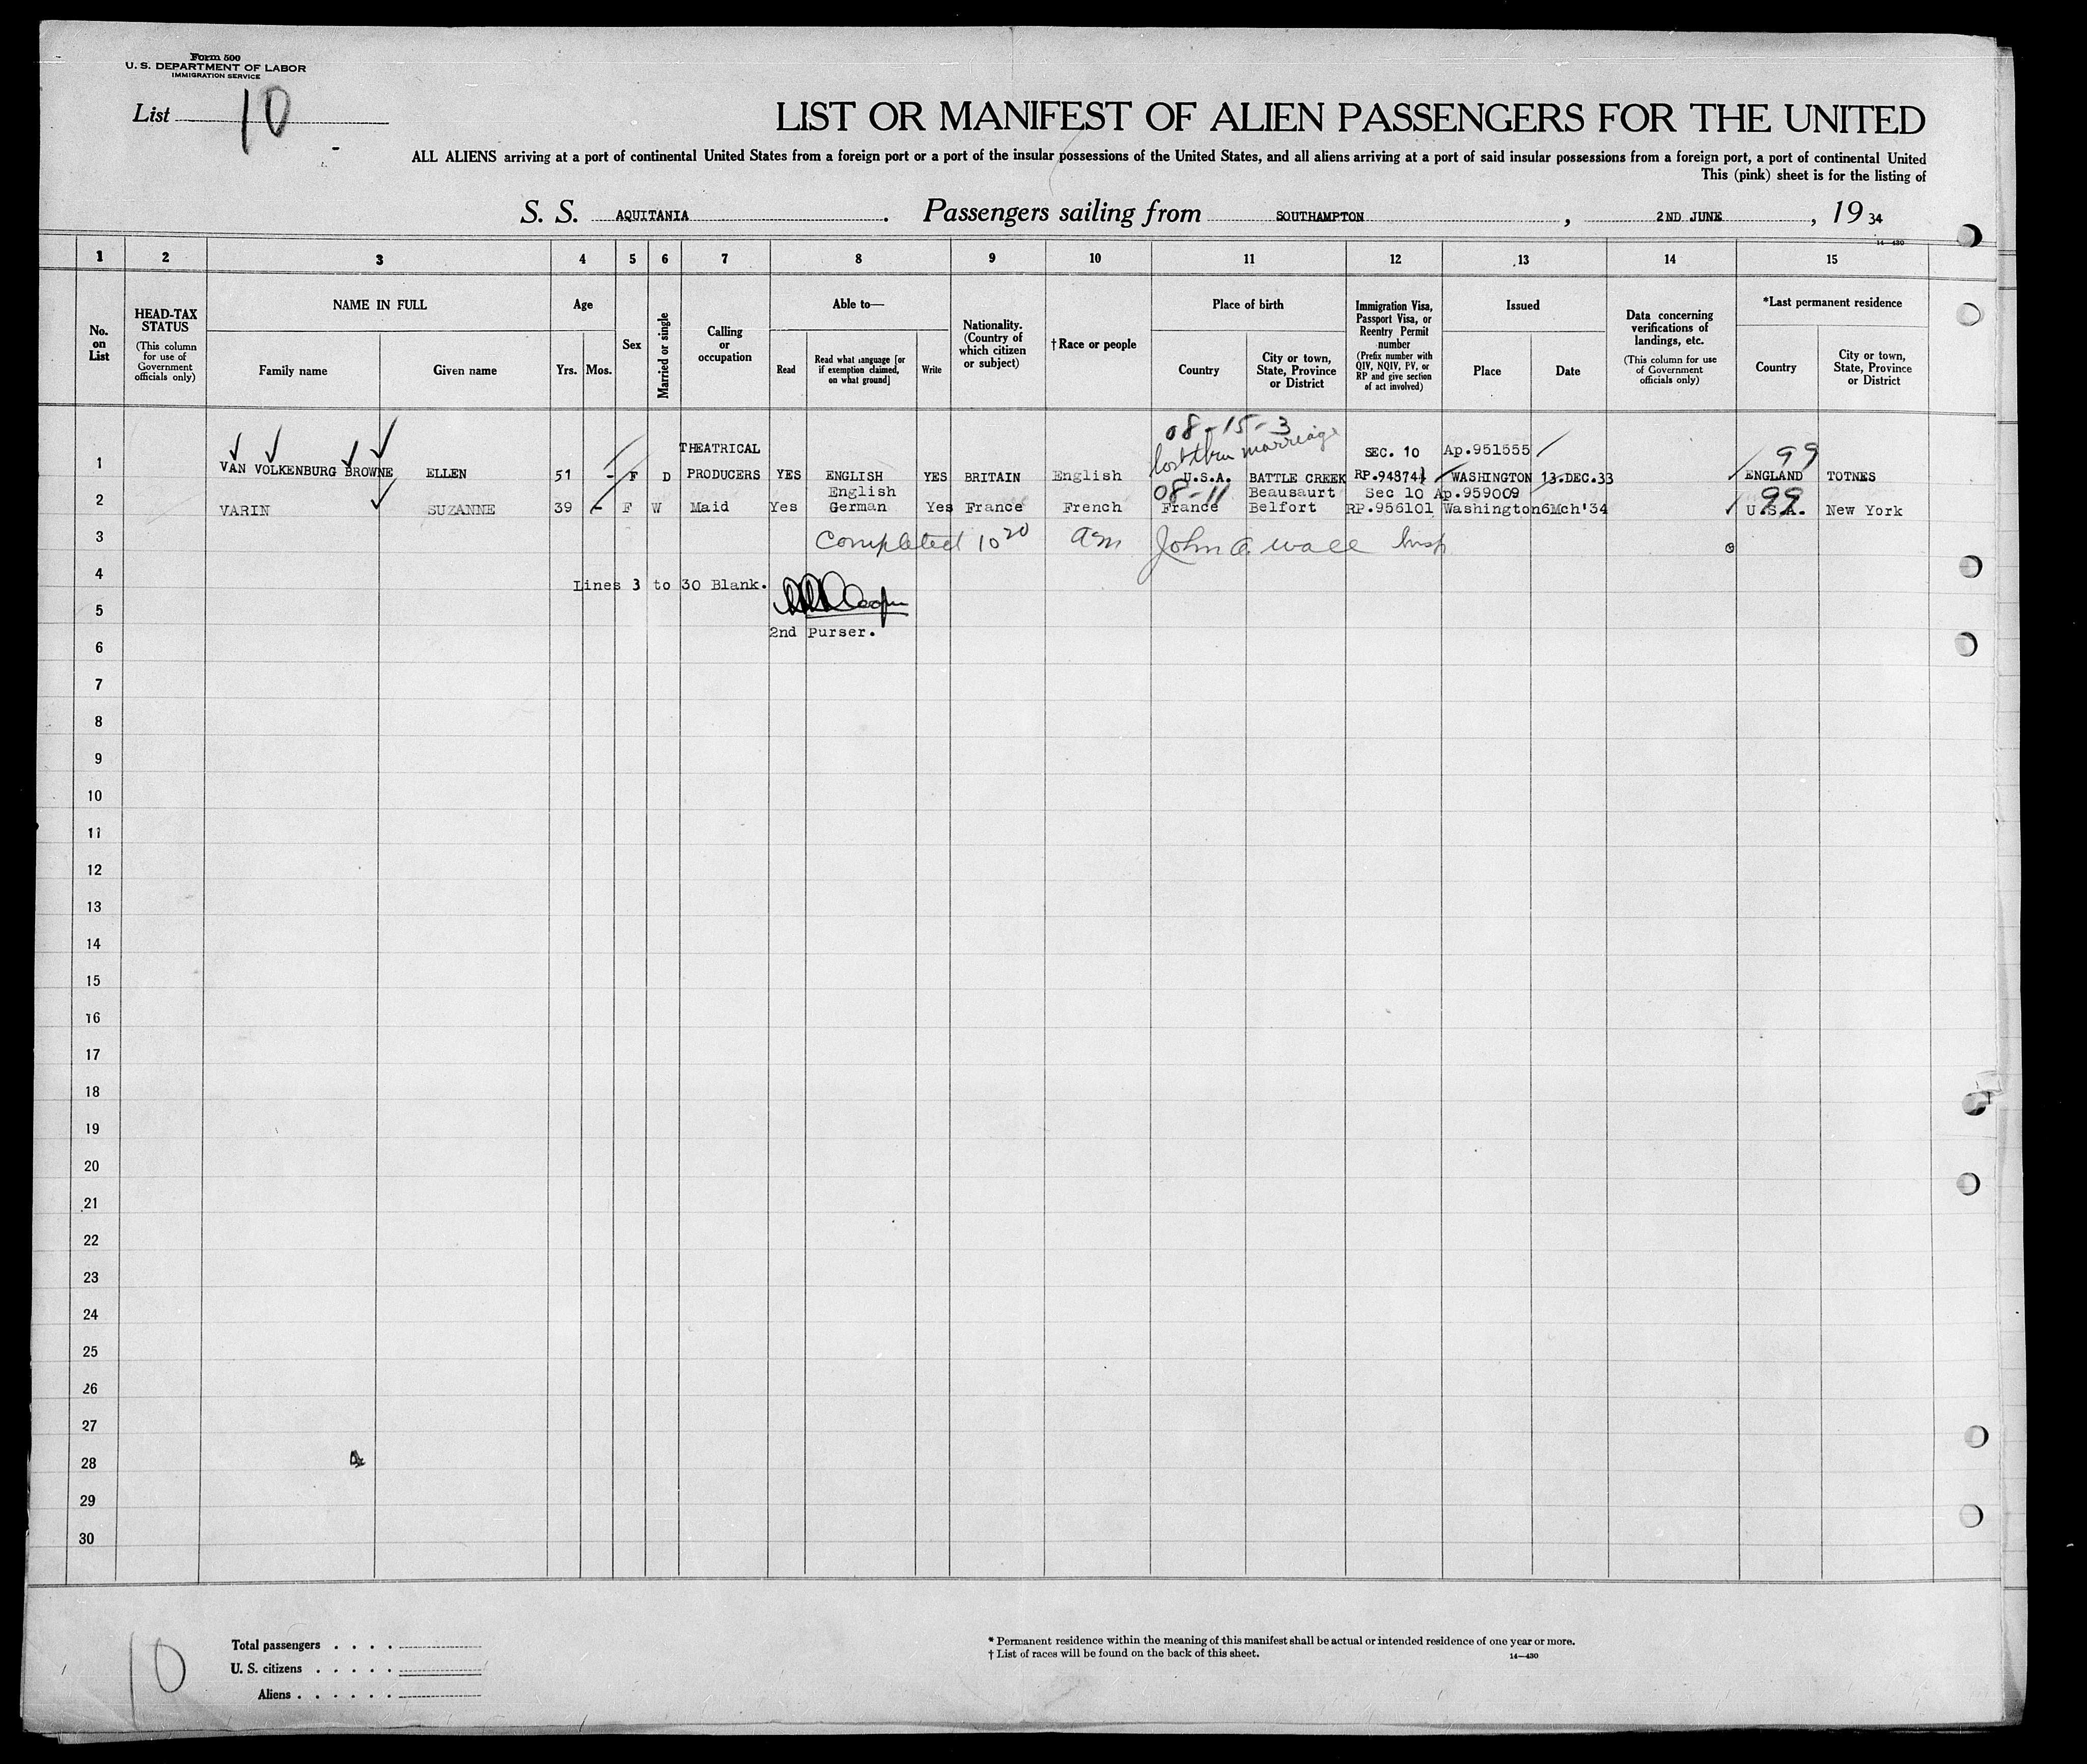 Form 500
U. S. DEPARTMENT OF LABOR
IMMIGRATION SERVICE
List 10
LIST OR MANIFEST OF ALIEN PASSENGERS FOR THE UNITED
ALL ALIENS arriving at a port of continental United States from a foreign port or a port of the insular possessions of the United States, and all aliens arriving at a port of said insular possessions from a foreign port, a port of continental United
This (pink) sheet is for the listing of
S. S. AQUITANIA. Passengers sailing from SOUTHAMPTON, 2ND JUNE, 19 34
14—430
1 2 3 4 5 6 7 8 9 10 11 12 13 14 15
No. on List
HEAD-TAX STATUS (This column for use of Government officials only)
NAME IN FULL
Family name
Given name
Age
Yrs.
Mos.
Sex
Married or single
Calling or occupation
Able to—
Read
Read what language [or if exemption claimed, on what ground]
Write
Nationality. (Country of which citizen or subject)
†Race or people
Place of birth
Country
City or town, State, Province or District
Immigration Visa, Passport Visa, or Reentry Permit number (Prefix number with QIV, NQIV, PV, or RP and give section of act involved)
Issued
Place
Date
Data concerning verifications of landings, etc. (This column for use of Government officials only)
*Last permanent residence
Country
City or town, State, Province or District
08-15-3
lost thru marriage
THEATRICAL SEC. 10 Ap.951555 99
1 VAN VOLKENBURG BROWNE ELLEN 51 - F D PRODUCERS YES ENGLISH YES BRITAIN English U.S.A. BATTLE CREEK RP.948741 WASHINGTON 13.DEC.33 ENGLAND TOTNES
English 08-11 Beausaurt Sec 10 Ap.959009 99
2 VARIN SUZANNE 39 - F W Maid Yes German Yes France French France Belfort RP.956101 Washington 6Mch'34 U.S.A. New York
3 Completed 10 20 am John A. Wall Insp
4 Lines 3 to 30 Blank.
5
2nd Purser.
6
7
8
9
10
11
12
13
14
15
16
17
18
19
20
21
22
23
24
25
26
27
28
29
30
10
Total passengers . . . .
U. S. citizens . . . . .
Aliens . . . . . .
* Permanent residence within the meaning of this manifest shall be actual or intended residence of one year or more.
† List of races will be found on the back of this sheet.
14—430